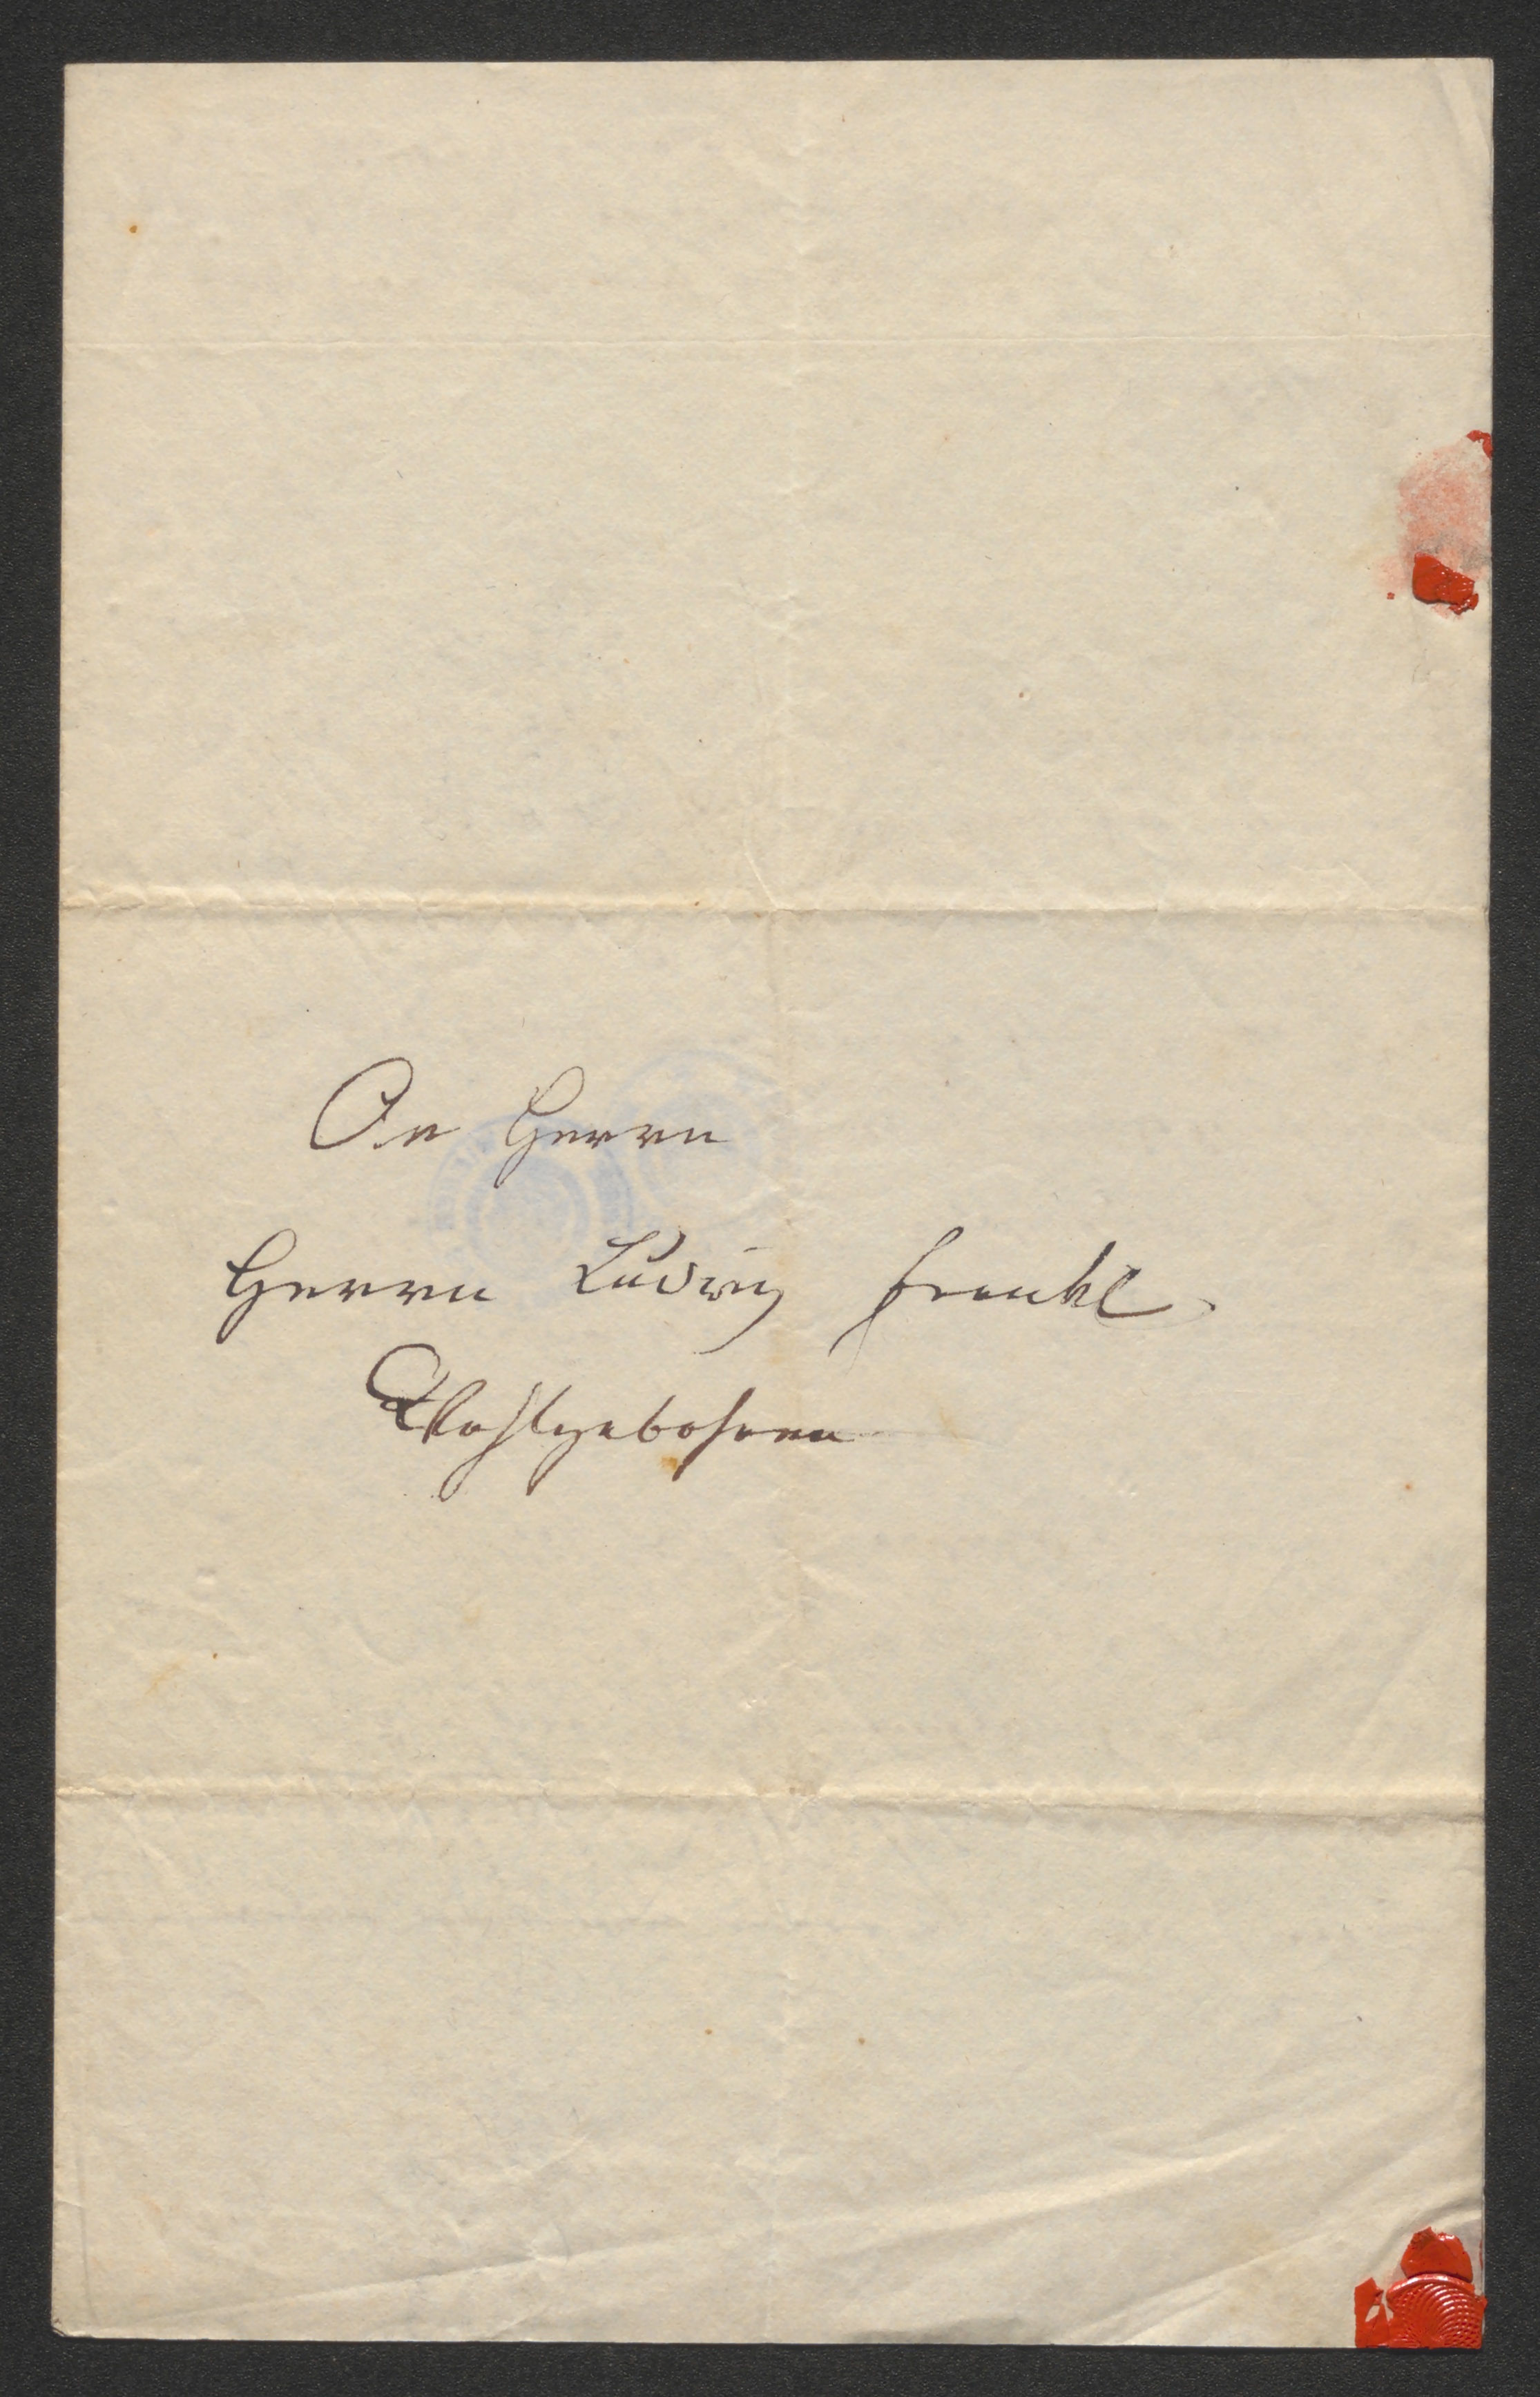 An Herrn
Herrn Ludwig Frankl
Wohlgebohren